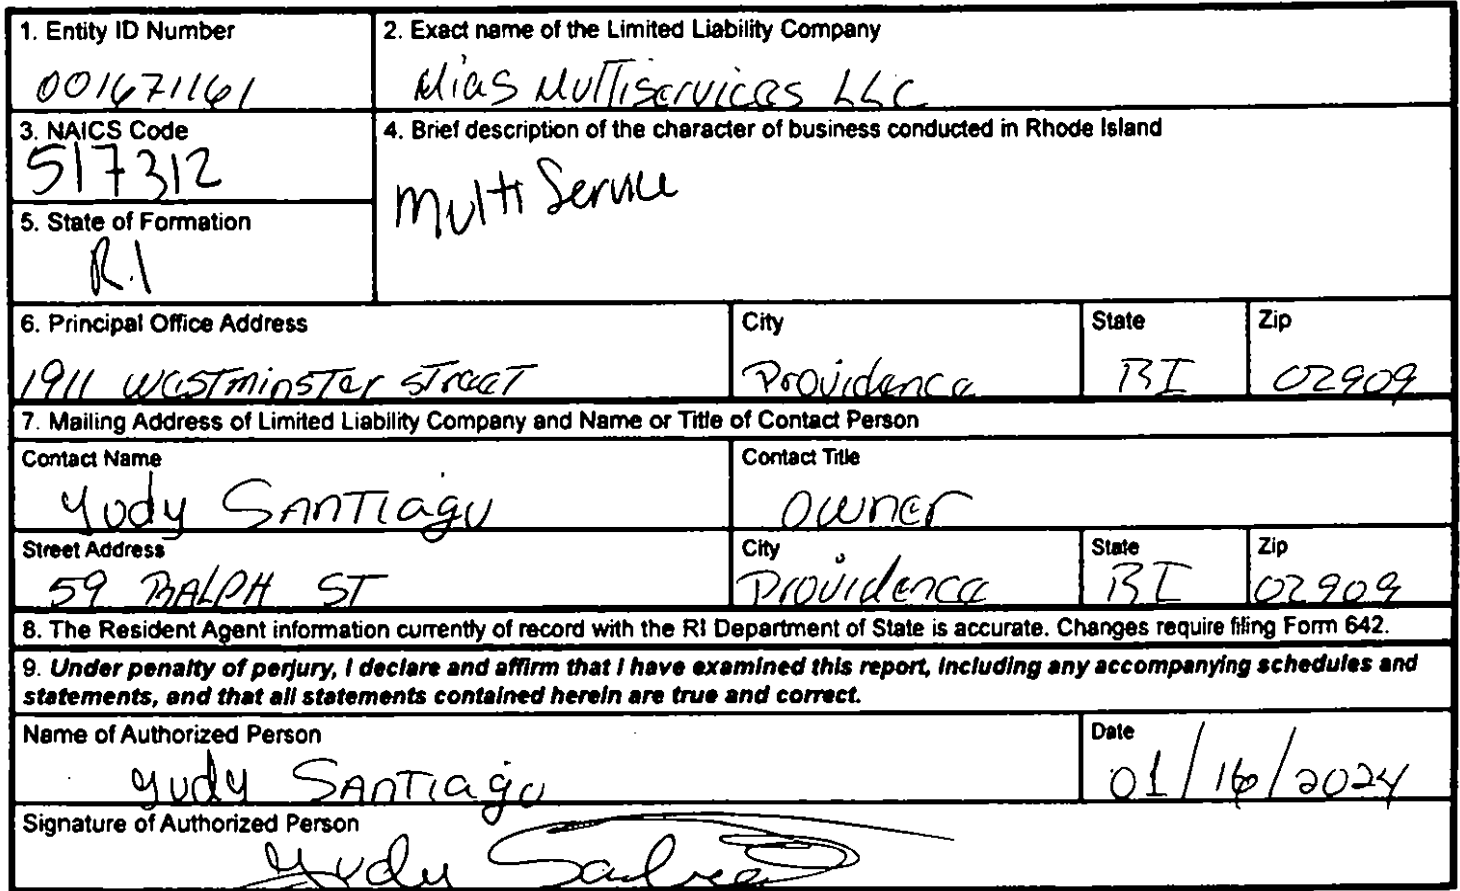 1. Entity ID Number
001671161
2. Exact name of the Limited Liability Company
Mias Multiservices LLC
3. NAICS Code
517312
4. Brief description of the character of business conducted in Rhode Island
Multi Service
5. State of Formation
R.I
6. Principal Office Address
1911 Westminster Street
City
Providence
State
RI
Zip
02909
7. Mailing Address of Limited Liability Company and Name or Title of Contact Person
Contact Name
Yudy Santiago
Contact Title
owner
Street Address
59 RALPH ST
City
Providence
State
RI
Zip
02909
8. The Resident Agent information currently of record with the RI Department of State is accurate. Changes require filing Form 642.
9. Under penalty of perjury, I declare and affirm that I have examined this report, including any accompanying schedules and
statements, and that all statements contained herein are true and correct.
Name of Authorized Person
Yudy Santiago
Date
01/16/2024
Signature of Authorized Person
Yudy